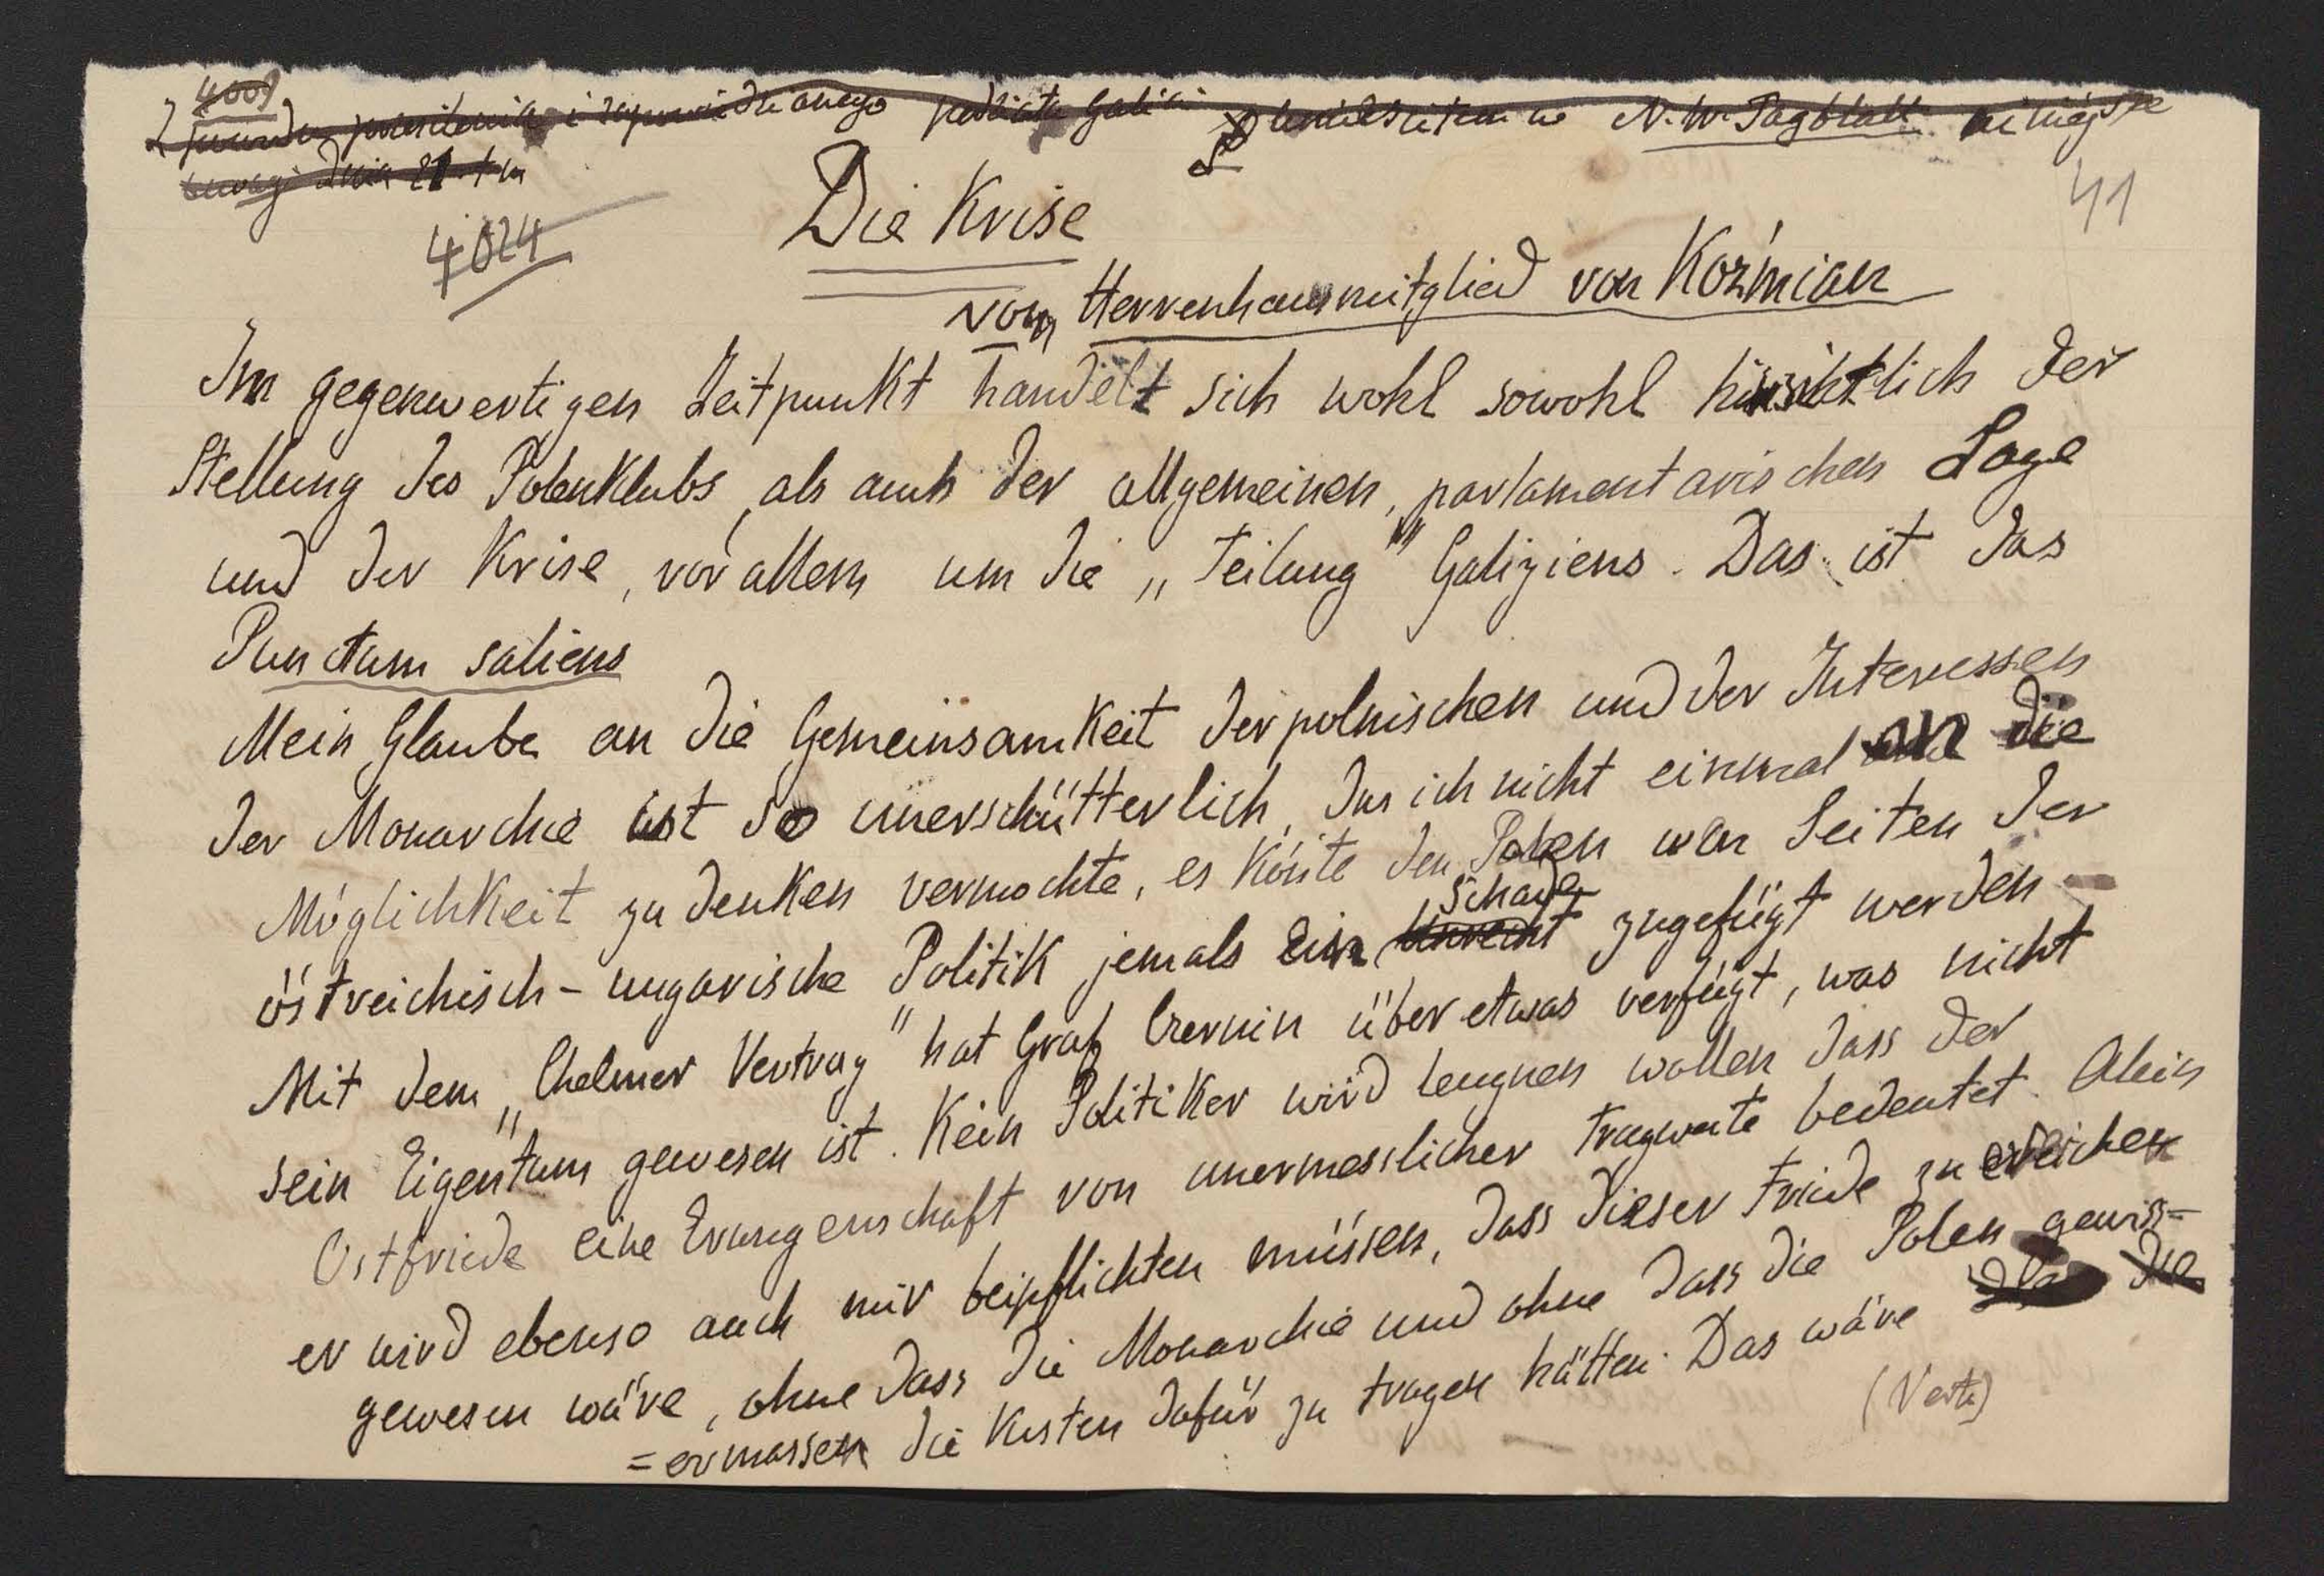 4009
Z powodu przesilenia i zapowiedzianego podziału Galicji umieściłem w N. W. Tagblatt niniejsze
uwagi dnia 21 t m
4024
41
Die Krise
vom Herrenhausmitglied von Koźmian
Im gegenwertigen Zeitpunkt handelt sich wohl sowohl hinsichtlich der
Stellung des Polenklubs, als auch der allgemeinen, parlamentarischen Lage
und der Krise, vor allem um die „Teilung" Galiziens. Das ist das
Punctum saliens
Mein Glaube an die Gemeinsamkeit der polnischen und der Interessen
der Monarchie ist so unerschütterlich, das ich nicht einmal an die
Möglichkeit zu denken vermochte, es könte den Polen von Seiten der
östreichisch-ungarische Politik jemals ein Unrecht Schade zugefügt werden.
Mit dem „Chelmer Vertrag" hat Graf Czernin über etwas verfügt, was nicht
sein Eigentum gewesen ist. Kein Politiker wird leugnen wollen dass der
Ostfriede eine Erungenschaft von unermesslicher Tragweite bedeutet. Alein
er wird ebenso auch mir beipflichten müssen, dass dieser Friede zu erreichen
gewesen wäre, ohne dass die Monarchie und ohne dass die Polen gewiss=
=ermassen die Kosten dafür zu tragen hätten. Das wäre die
(Verte)